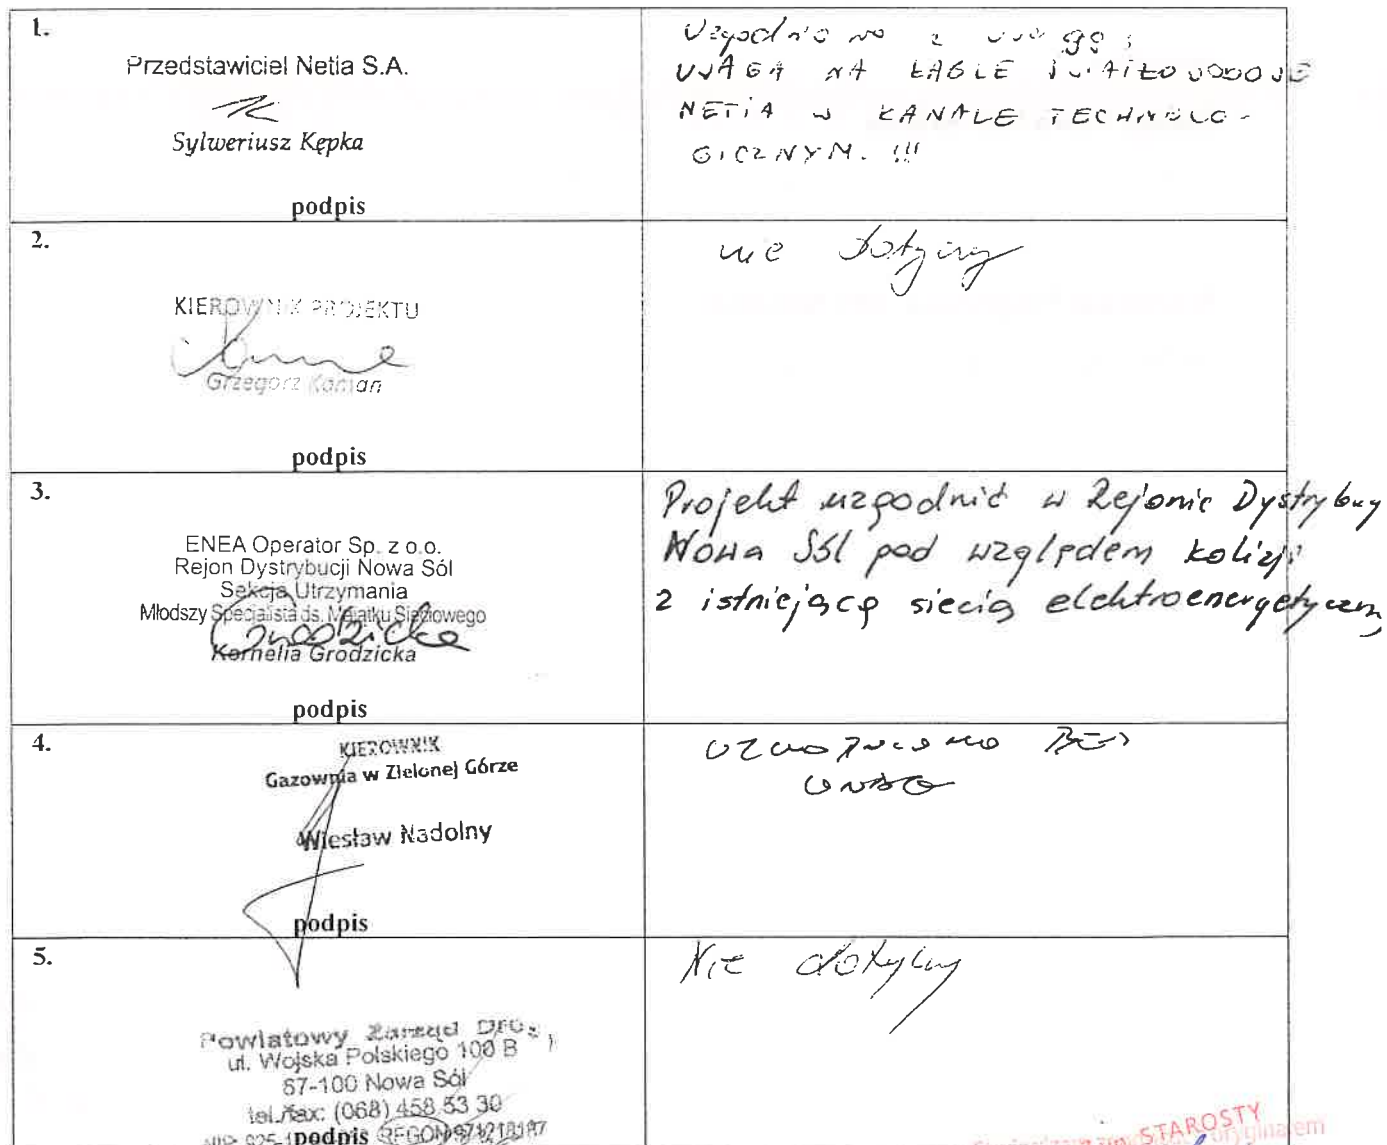 1.
Przedstawiciel Netia S.A.
Sylweriusz Kępka
podpis
Uzgodniono z uwagą:
UWAGA NA KABLE ŚWIATŁOWODOWE
NETIA W KANALE TECHNOLO-
GICZNYM. !!!
2.
KIEROWNIK PROJEKTU
Grzegorz Koman
podpis
nie dotyczy
3.
ENEA Operator Sp. z o.o.
Rejon Dystrybucji Nowa Sól
Sekcja Utrzymania
Młodszy Specjalista ds. Majątku Sieciowego
Kornelia Grodzicka
podpis
Projekt uzgodnić w Rejonie Dystrybucji
Nowa Sól pod względem kolizji
z istniejącą siecią elektroenergetyczną
4.
KIEROWNIK
Gazownia w Zielonej Górze
Wiesław Nadolny
podpis
UZGODNIONO BEZ
UWAG
5.
Powiatowy Zarząd Dróg
ul. Wojska Polskiego 100 B
67-100 Nowa Sól
tel./fax: (068) 458 53 30
podpis REGON 971218197
Nie dotyczy
STAROSTY